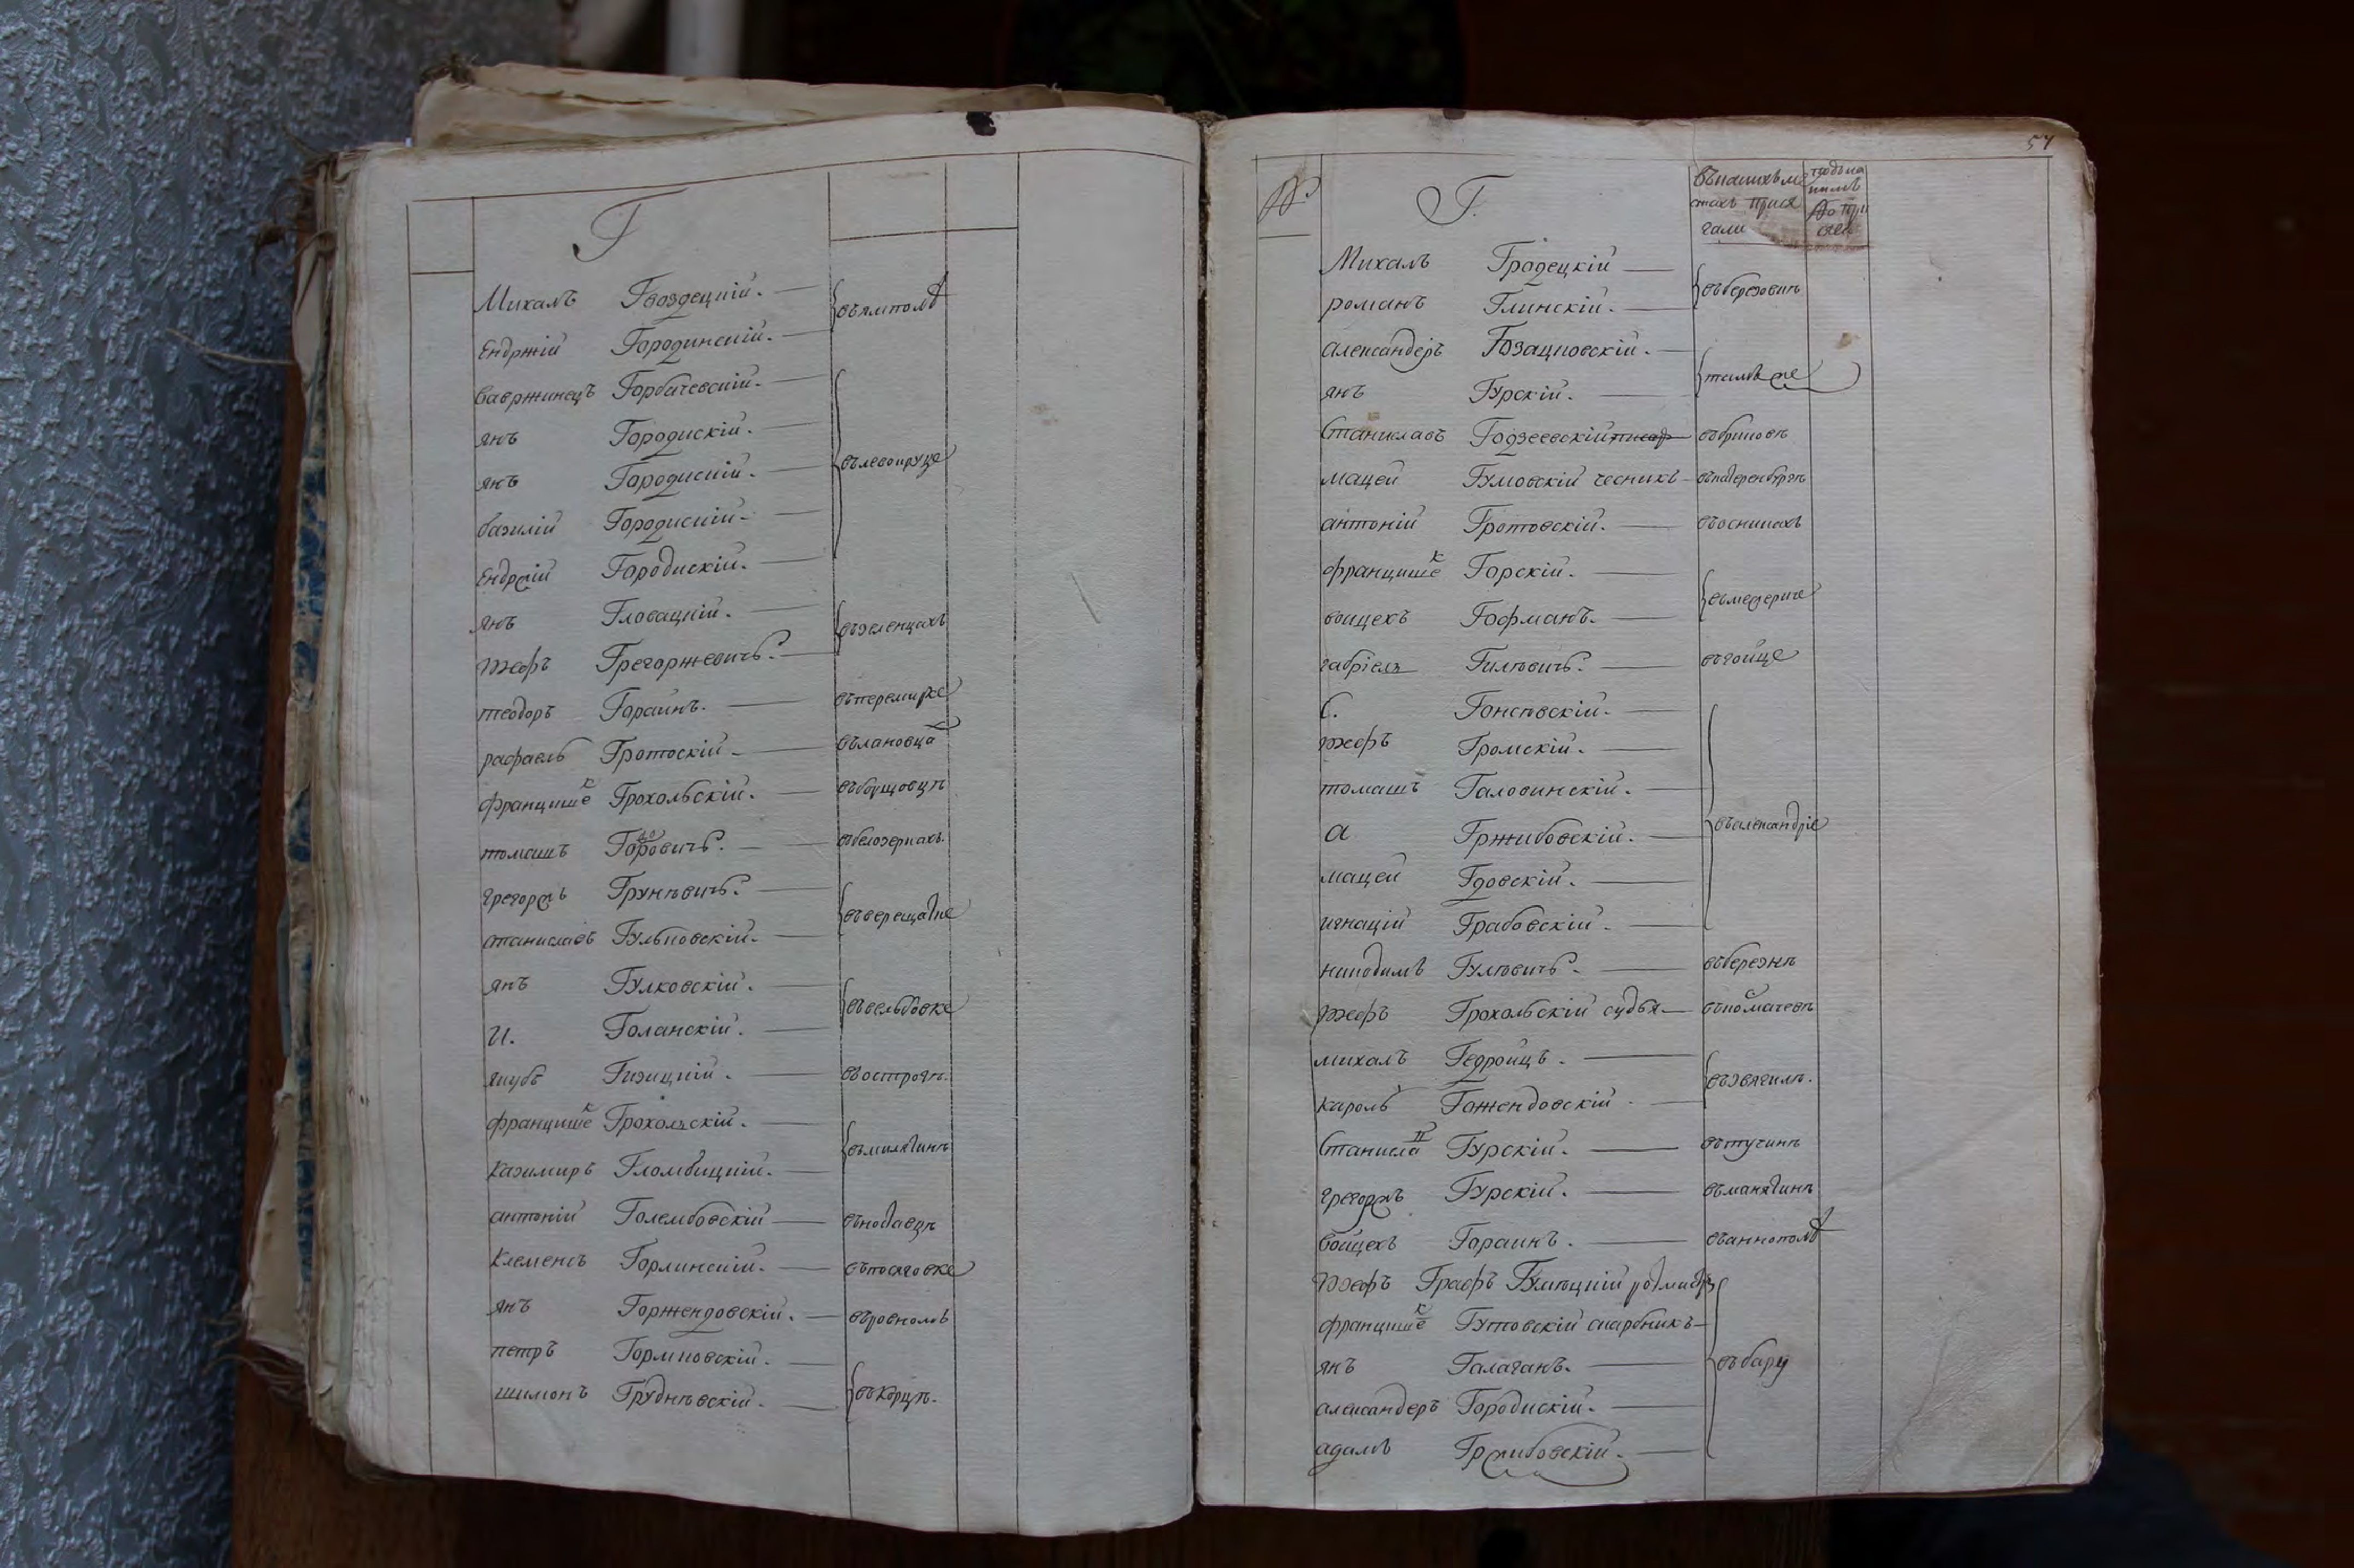 Г
Михалъ Гвоздецкій. въямполѣ
Ендржій Городинскій.
Вавржинецъ Горбачевскій.
янъ Городискій. вълевоируце
янъ Городискій.
базилій Городискій.
Ендржій Городискій.
янъ Гловацкій. въжеленцахъ
Юзефъ Грегоржевичъ.
теодоръ Гораинъ. въперемирке
рафаелъ Гротоскій вълановца
францишек Грохольскій. въбущовцѣ
томашъ Гордовичъ. вбелозеркахъ.
грегоржъ Грунѣвичъ. въверещатке
станиславъ Гульковскій.
янъ Гулковскій. въвельбовке
И. Голанскій.
якубъ Гизицкій. въострогѣ.
францишек Грохольскій. въмилятинѣ
казимиръ Гломбицкій.
антоній Голембовскій
Клеменсъ Горлинскій. въпосяговке
янъ Горжендовскій. въровномъ
петръ Гормновскій. въкорцѣ.
шимонъ Груднѣвскій.
57
№ Г. въкакихъ ме стахъ прися гали
Михалъ Градецкій въберезовнѣ
романъ Глинскій.
александеръ Гозацковскій.
янъ Гурскій.
Станиславъ Годзеевскій
мацей Гумовскій чесникъ
антоній Гротовскій. въосникахъ
францишек Горскій. въмежериче
воицехъ Гофманъ.
габріелъ Гилювичъ. въгоице
С. Гонсѣвскій.
Юзефъ Громскій.
томашъ Галовинскій.
а Гржибовскій. въалександріе
мацей Гдовскій.
игнацій Грабовскій.
никодимъ Гулювичъ. въбережнѣ
Юзефъ Грохольскій судья
михалъ Гедроицъ. възвягилѣ.
кароль Гожендовскій
Станисла Гурскій. вътучинѣ
грегоржъ Гурскій. въманятинѣ
Воицехъ Гораинъ. въаннополѣ
Юзефъ Графъ ротмистръ
францишек Гутовскій скарбникъ
янъ Галаганъ. въбару
александеръ Городискій.
адамъ Гржибовскій.